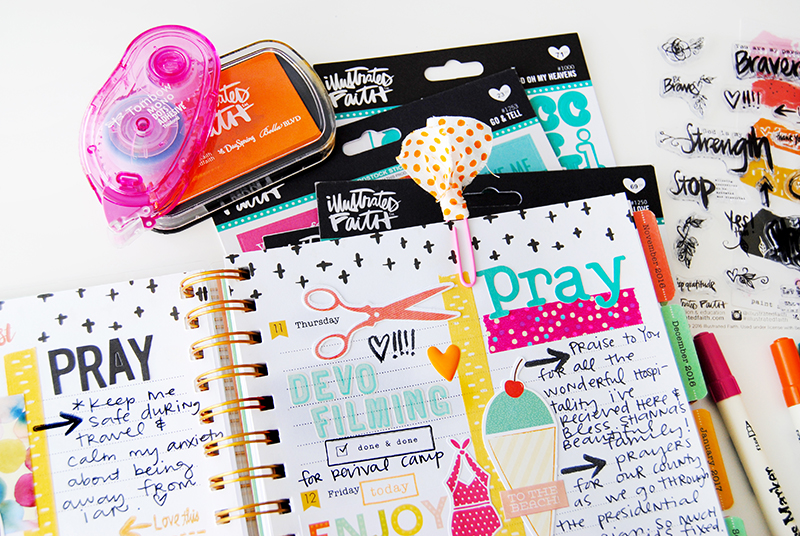 Tombow
MONO
illustrated
FAITH
DaySpring
Bella BLVD
illustrated
FAITH
71
#1000
OH MY HEAVENS
23
#1253
GO & TELL
ME
illustrated
FAITH
69
#1250
LOVE
Be
Brave
Brave
Strength
Stop
Yes!
paint
illustrated
FAITH
November 2016
December 2016
January 2017
PRAY
*Keep me
safe during
travel &
calm my anxiety
about being
away from
Love this
11 Thursday
!!!!
DEVO
FILMING
done & done
for revival camp
12 Friday today
ENJOY
pray
Praise to You
for all the
wonderful hospi-
tality i've
recieved here &
Bless Shanna's
Beautiful
family!
prayers
for our country
as we go through
the presidential
so much
is fixed.
TO THE
BEACH
Marker